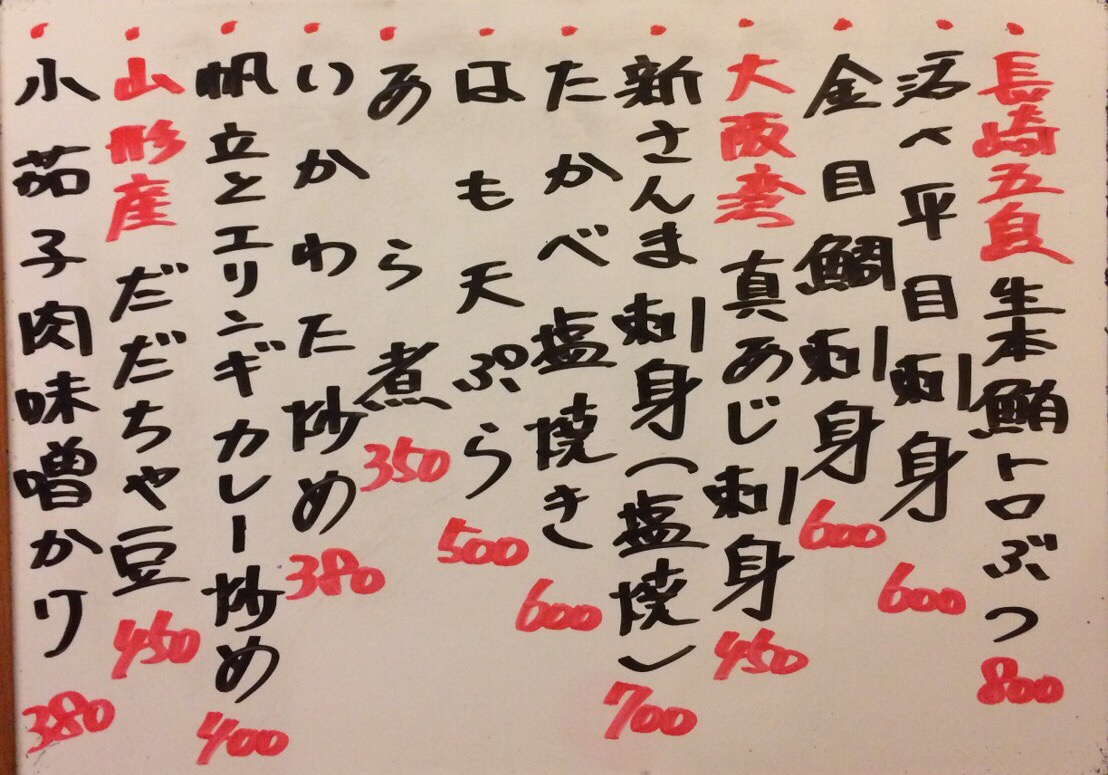 長崎五島 生本鮪トロぶつ 800
活〆平目刺身 600
金目鯛刺身 600
大阪湾 真あじ刺身 450
新さんま刺身(塩焼) 700
たかべ塩焼き 600
はも天ぷら 500
あら煮 350
いかわた炒め 380
帆立とエリンギカレー炒め 400
山形産 だだちゃ豆 450
小茄子肉味噌かけ 380